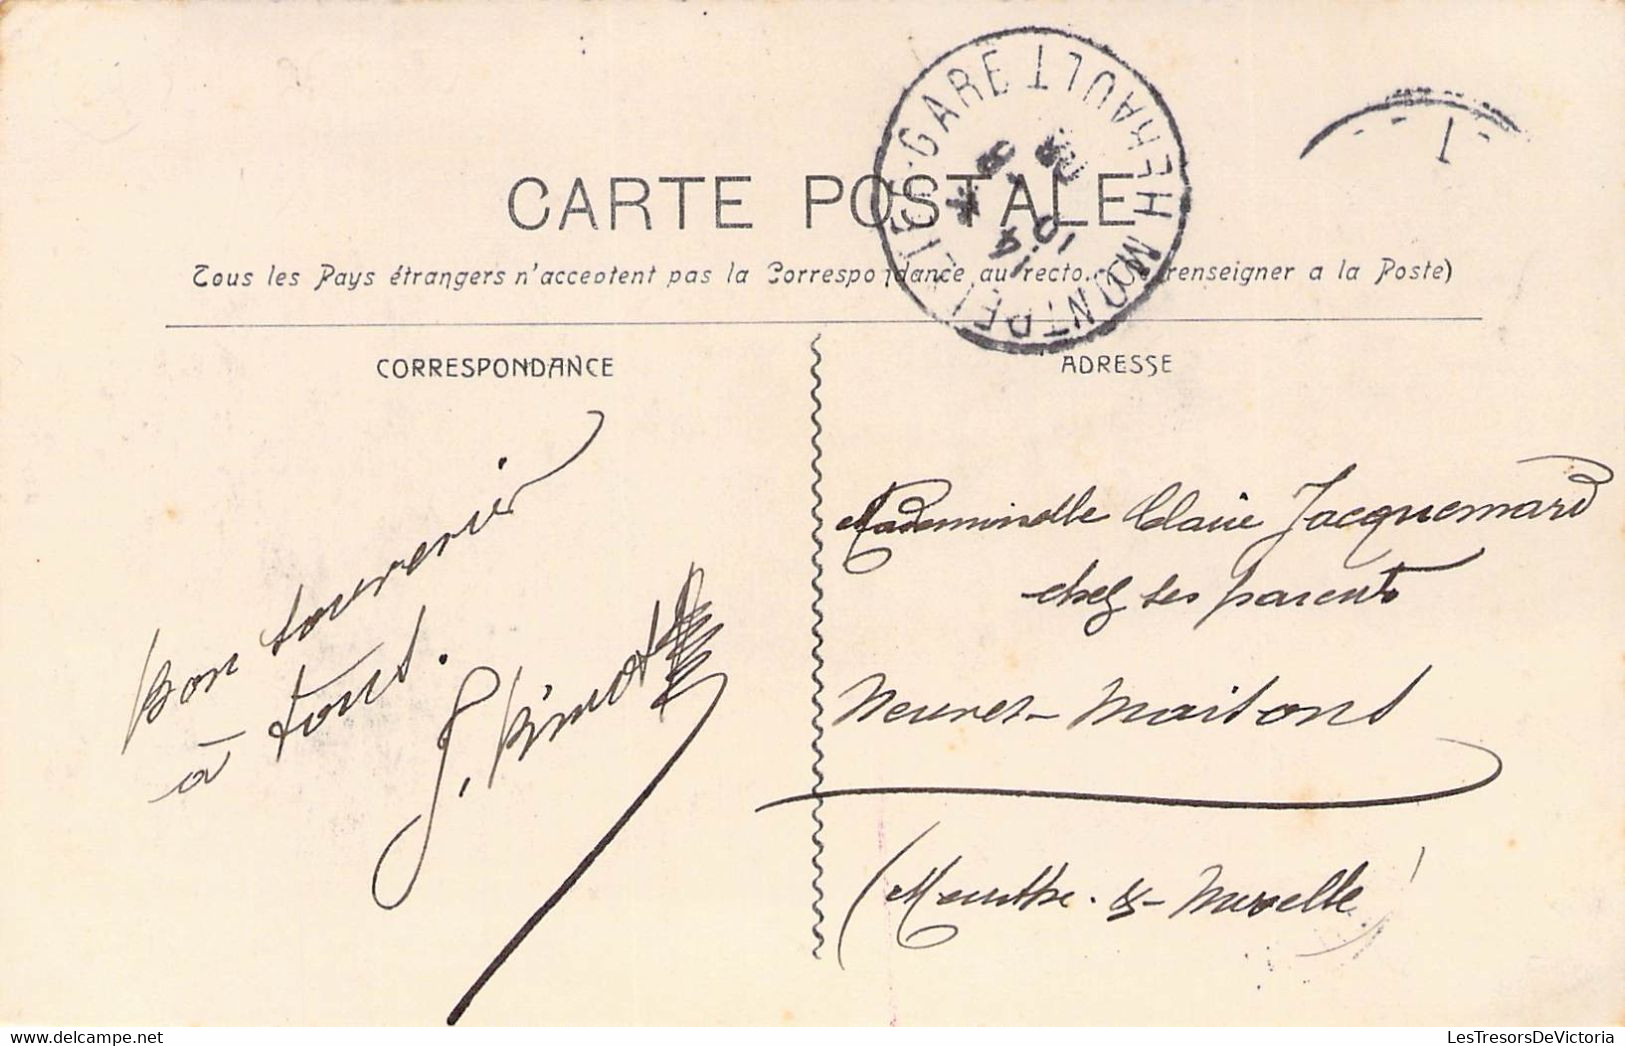 CARTE POSTALE
Tous les Pays étrangers n'acceptent pas la Correspondance au recto. (Se renseigner a la Poste)
CORRESPONDANCE
ADRESSE
MONTPELLIER-GARE HERAULT
Bon souvenir
à tous.
Mademoiselle Claire Jacquemard
chez ses parents
Neuves-Maisons
(Meurthe-&-Moselle)
LesTresorsDeVictoria
LesTresorsDeVictoria.com